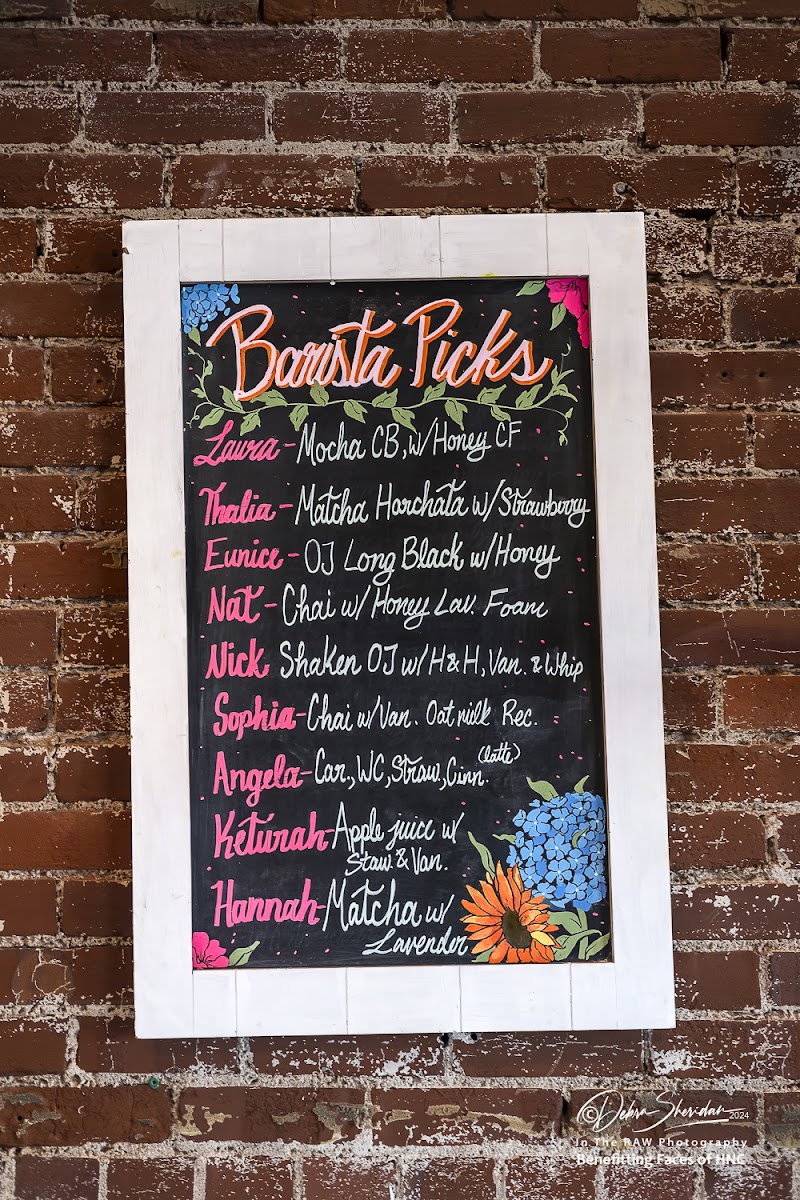 Barista Picks
Laura - Mocha CB, w/ Honey CF
Thalia - Matcha Horchata w/ Strawberry
Eunice - OJ Long Black w/ Honey
Nat - Chai w/ Honey Lav. Foam
Nick Shaken OJ w/ H & H, Van. & Whip
Sophia - Chai w/ Van. Oat milk Rec.
(latte)
Angela - Car., WC, Straw., Cinn.
Keturah - Apple juice w/
Staw. & Van.
Hannah - Matcha w/
Lavender
©Debra Sheridan 2024
In The RAW Photography
Benefitting Faces of HNC